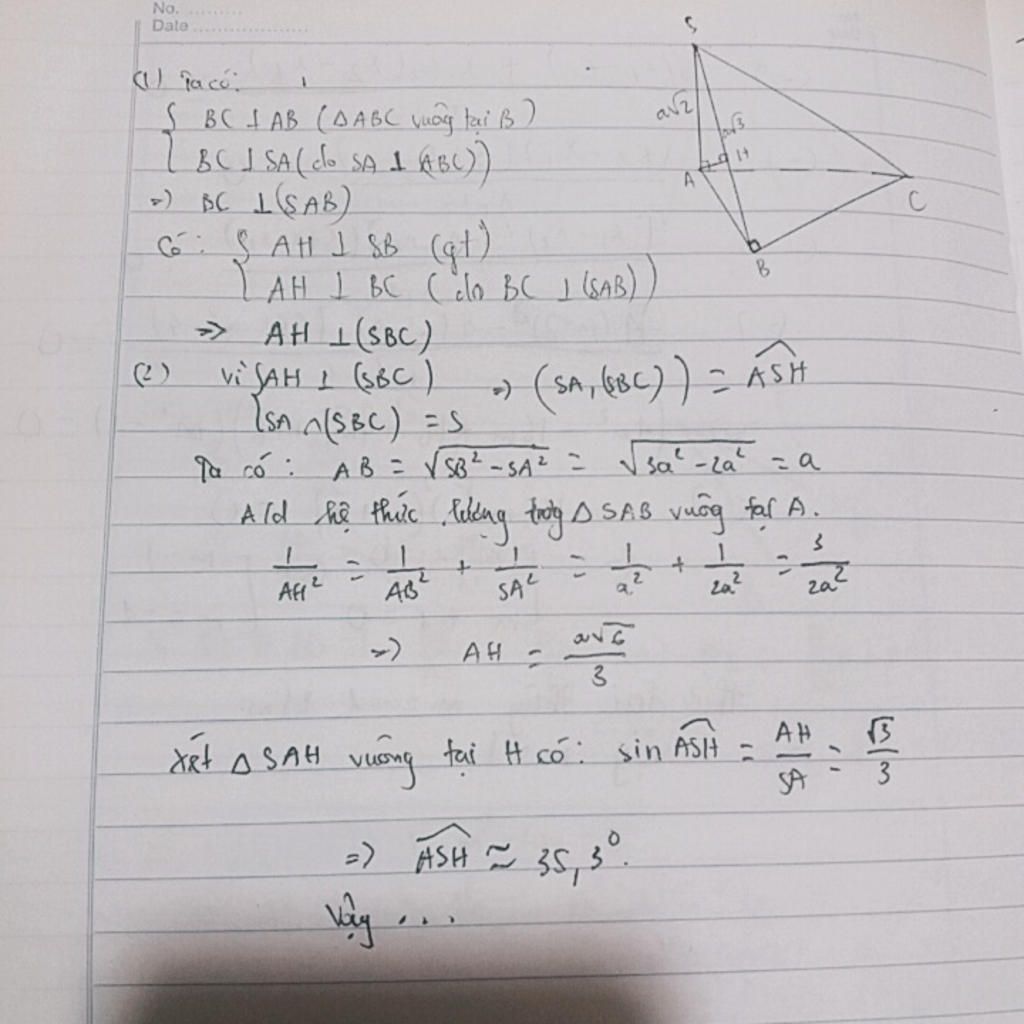 No. .........
Date ...................
(1) Ta có:
{ BC ⊥ AB (ΔABC vuông tại B)
{ BC ⊥ SA (do SA ⊥ (ABC))
=> BC ⊥ (SAB)
Có: { AH ⊥ SB (gt)
{ AH ⊥ BC (do BC ⊥ (SAB))
=> AH ⊥ (SBC)
(2) vì { AH ⊥ (SBC) => (SA, (SBC)) = \widehat{ASH}
{ SA ∩ (SBC) = S
Ta có: AB = √(SB² - SA²) = √(3a² - 2a²) = a
A/d hệ thức lượng trong Δ SAB vuông tại A.
1/AH² = 1/AB² + 1/SA² = 1/a² + 1/2a² = 3/2a²
=> AH = a√6/3
Xét Δ SAH vuông tại H có: sin \widehat{ASH} = AH/SA = √3/3
=> \widehat{ASH} ≈ 35,3°.
Vậy ...
S
a√2
a√3
H
A
C
B